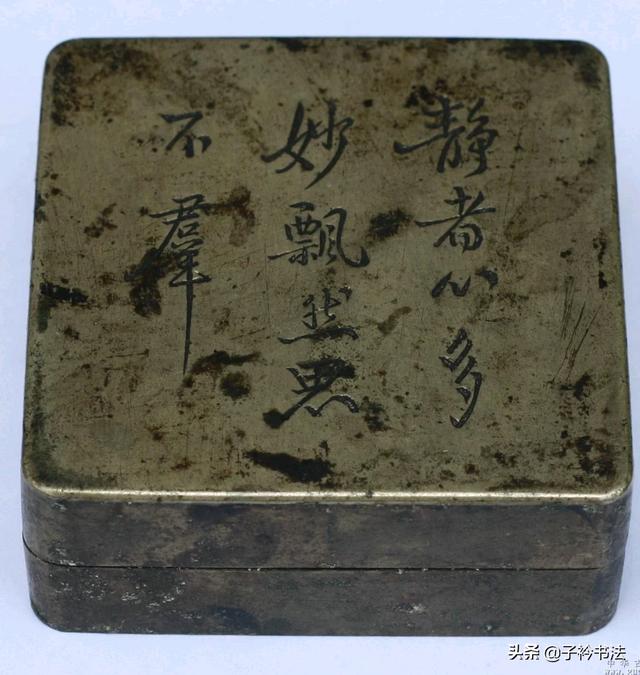 静者心多
妙飘然思
不羣
头条 @子衿书法